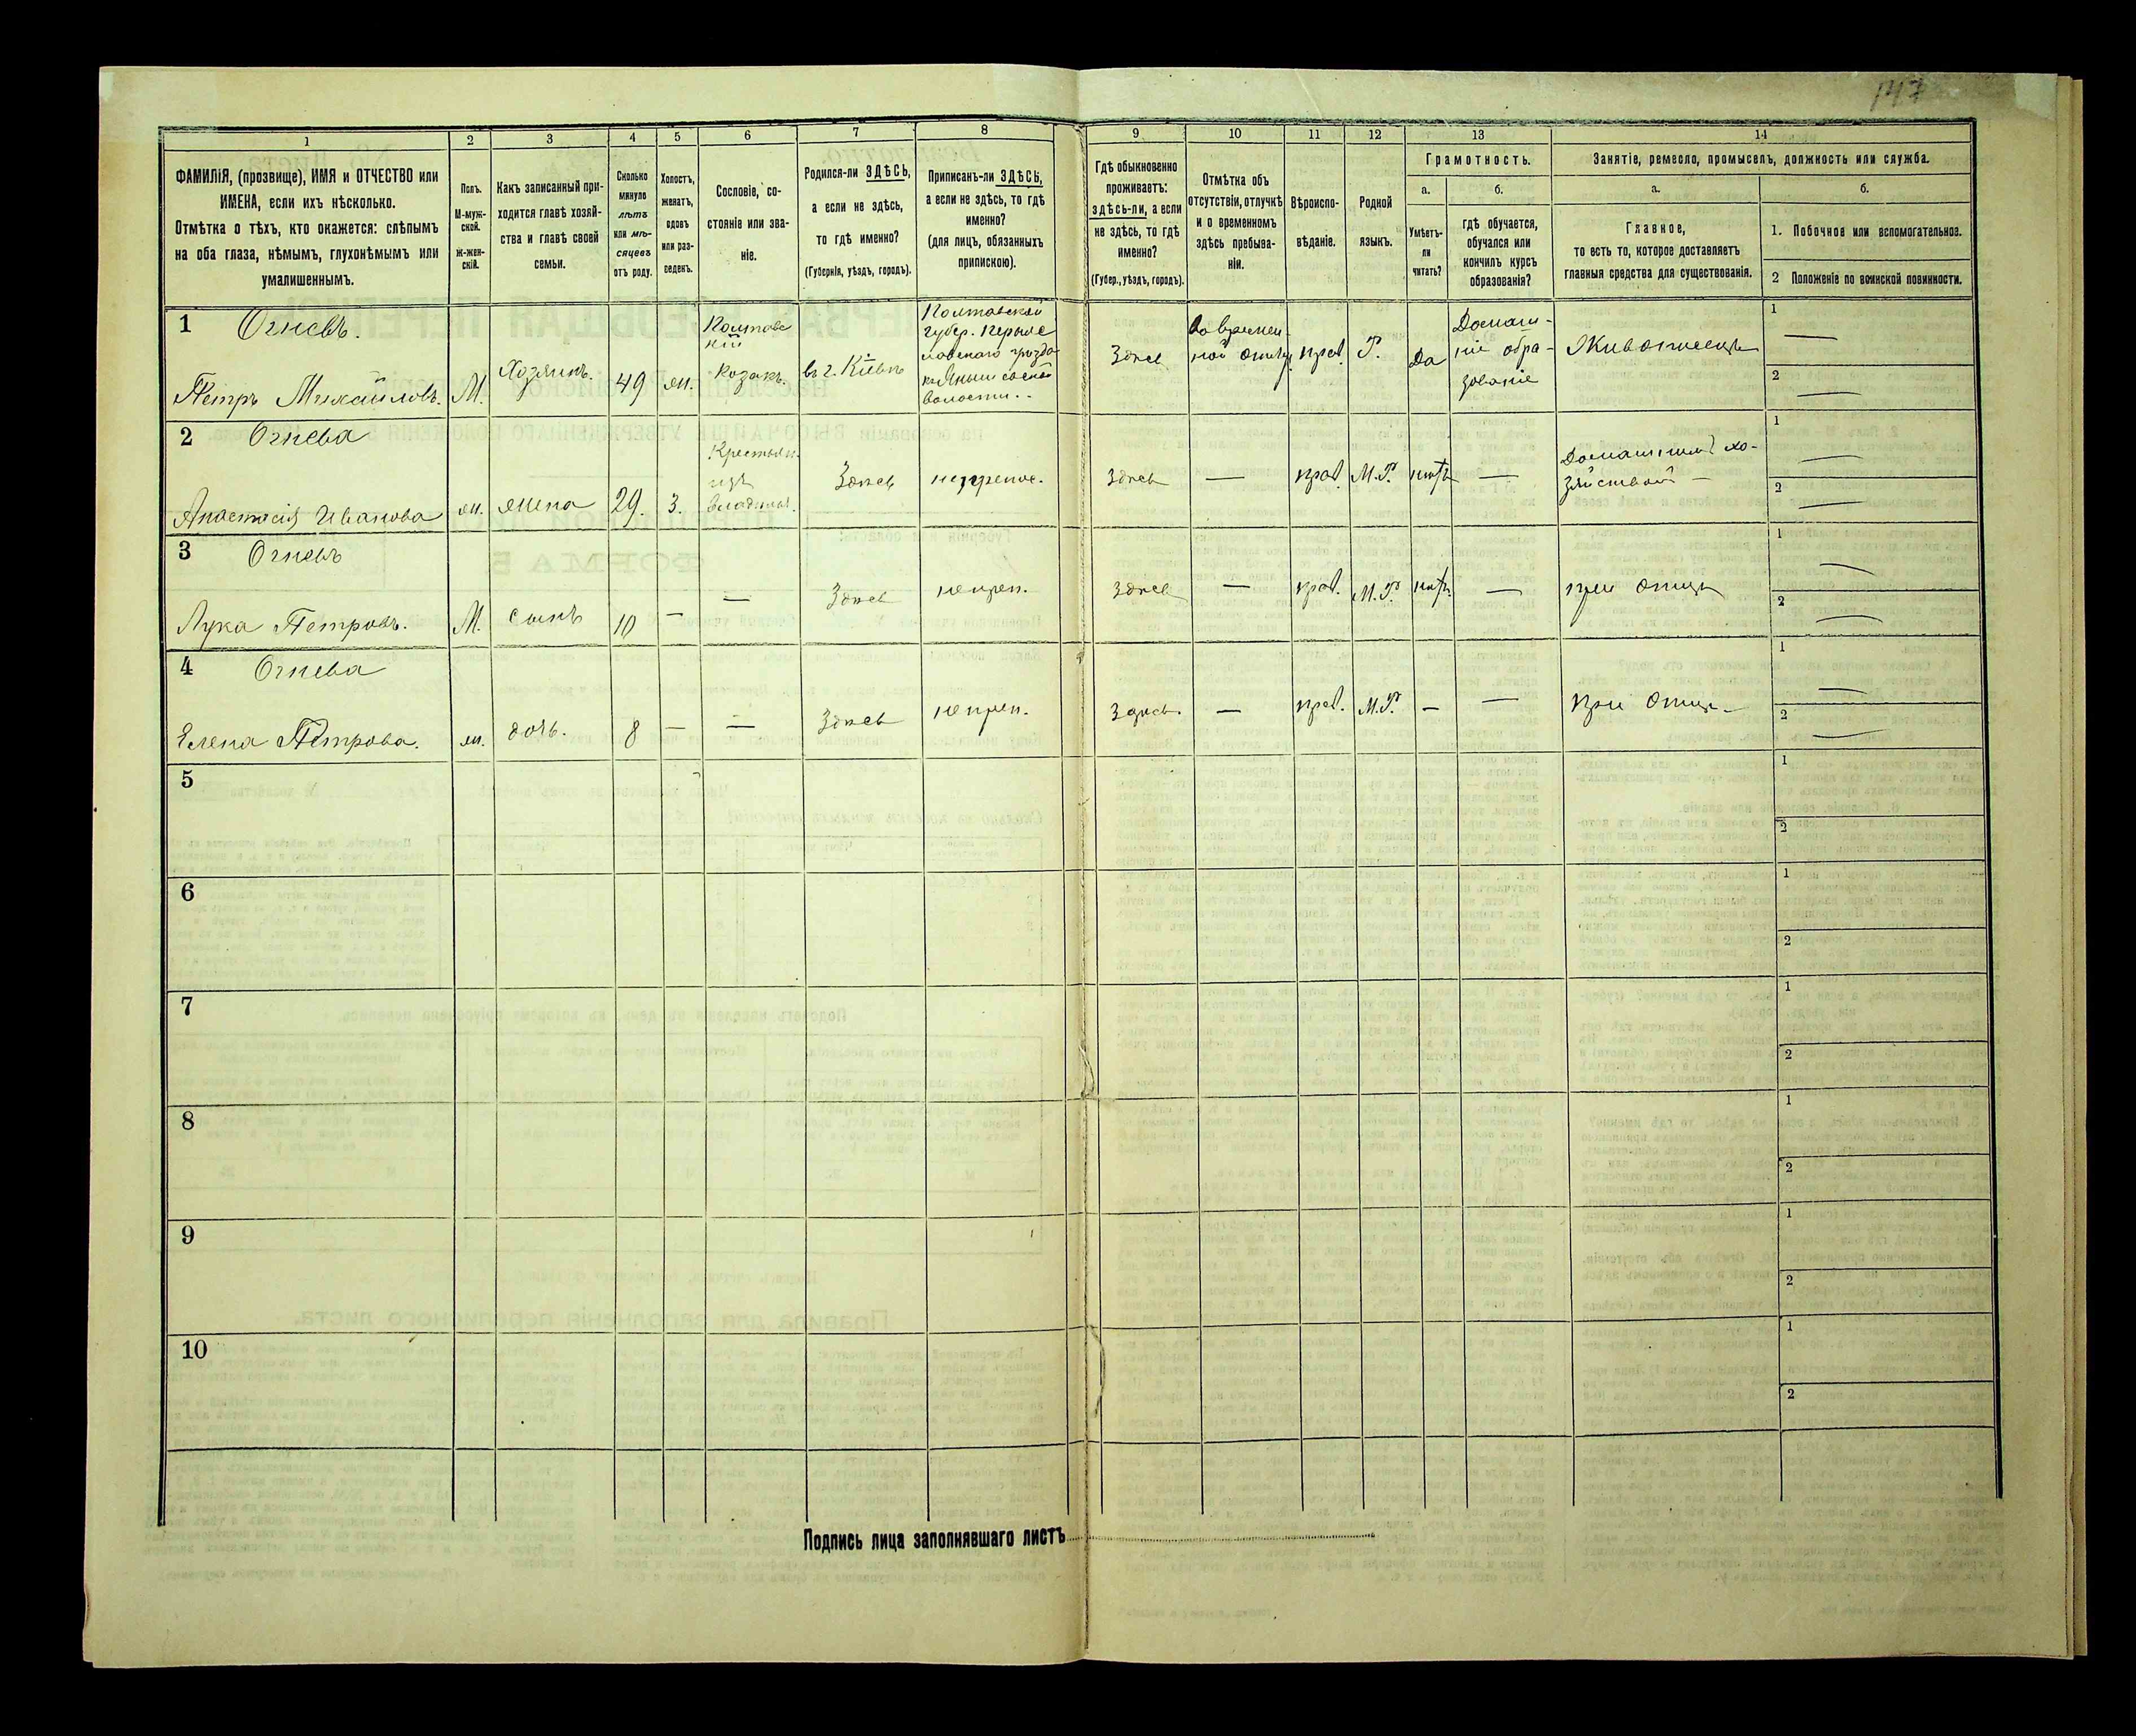 147
1
2
3
4
5
6
7
8
9
10
11
12
13
14
ФАМИЛІЯ, (прозвище), ИМЯ и ОТЧЕСТВО или
ИМЕНА, если ихъ нѣсколько.
Отмѣтка о тѣхъ, кто окажется: слѣпымъ
на оба глаза, нѣмымъ, глухонѣмымъ или
умалишеннымъ.
Полъ.
М-муж-
ской.
Ж-жен-
скій.
Какъ записанный при-
ходится главѣ хозяй-
ства и главѣ своей
семьи.
Сколько
минуло
лѣтъ
или мѣ-
сяцевъ
отъ роду.
Холостъ,
женатъ,
вдовъ
или раз-
веденъ.
Сословіе, со-
стояніе или зва-
ніе.
Родился-ли ЗДѢСЬ,
а если не здѣсь,
то гдѣ именно?
(Губернія, уѣздъ, городъ).
Приписанъ-ли ЗДѢСЬ,
а если не здѣсь, то гдѣ
именно?
(для лицъ, обязанныхъ
припискою).
Гдѣ обыкновенно
проживаетъ:
здѣсь-ли, а если
не здѣсь, то гдѣ
именно?
(Губер., уѣздъ, городъ).
Отмѣтка объ
отсутствіи, отлучкѣ
и о временномъ
здѣсь пребыва-
ніи.
Вѣроиспо-
вѣданіе.
Родной
языкъ.
Грамотность.
а.
б.
Умѣетъ-
ли
читать?
гдѣ обучается,
обучался или
кончилъ курсъ
образованія?
Занятіе, ремесло, промыселъ, должность или служба.
а.
б.
Главное,
то есть то, которое доставляетъ
главныя средства для существованія.
1. Побочное или вспомогательное.
2 Положеніе по воинской повинности.
1
Огневъ.
Петръ Михайловъ.
М.
Хозяинъ.
49
жн.
Полтавс
кій
козакъ.
въ г. Кіевѣ
Полтавской
губер.
волости.
Здѣсь
во времен-
ной отлуч.
прав.
Р.
Да
Домаш-
ніе обра-
зованіе
Живописецъ
1 —
2 —
2
Огнева
Анастасія Иванова
жн.
жена
29.
з.
Крестьян.
изъ
владѣльч.
Здѣсь
Здѣсь
—
прав.
М.Р.
нѣтъ
—
Домашним хо-
зяйством —
1 —
2 —
3
Огневъ
Лука Петровъ.
М.
сынъ
10
—
—
Здѣсь
неприп.
Здѣсь
—
прав.
М.Р.
нѣтъ
—
при отцѣ
1 —
2 —
4
Огнева
Елена Петрова.
жн.
дочь.
8
—
—
Здѣсь
неприп.
Здѣсь.
—
прав.
М.Р.
—
—
при отцѣ
1 —
2 —
5
1
2
6
1
2
7
1
2
8
1
2
9
1
2
10
1
2
Подпись лица заполнявшаго листъ